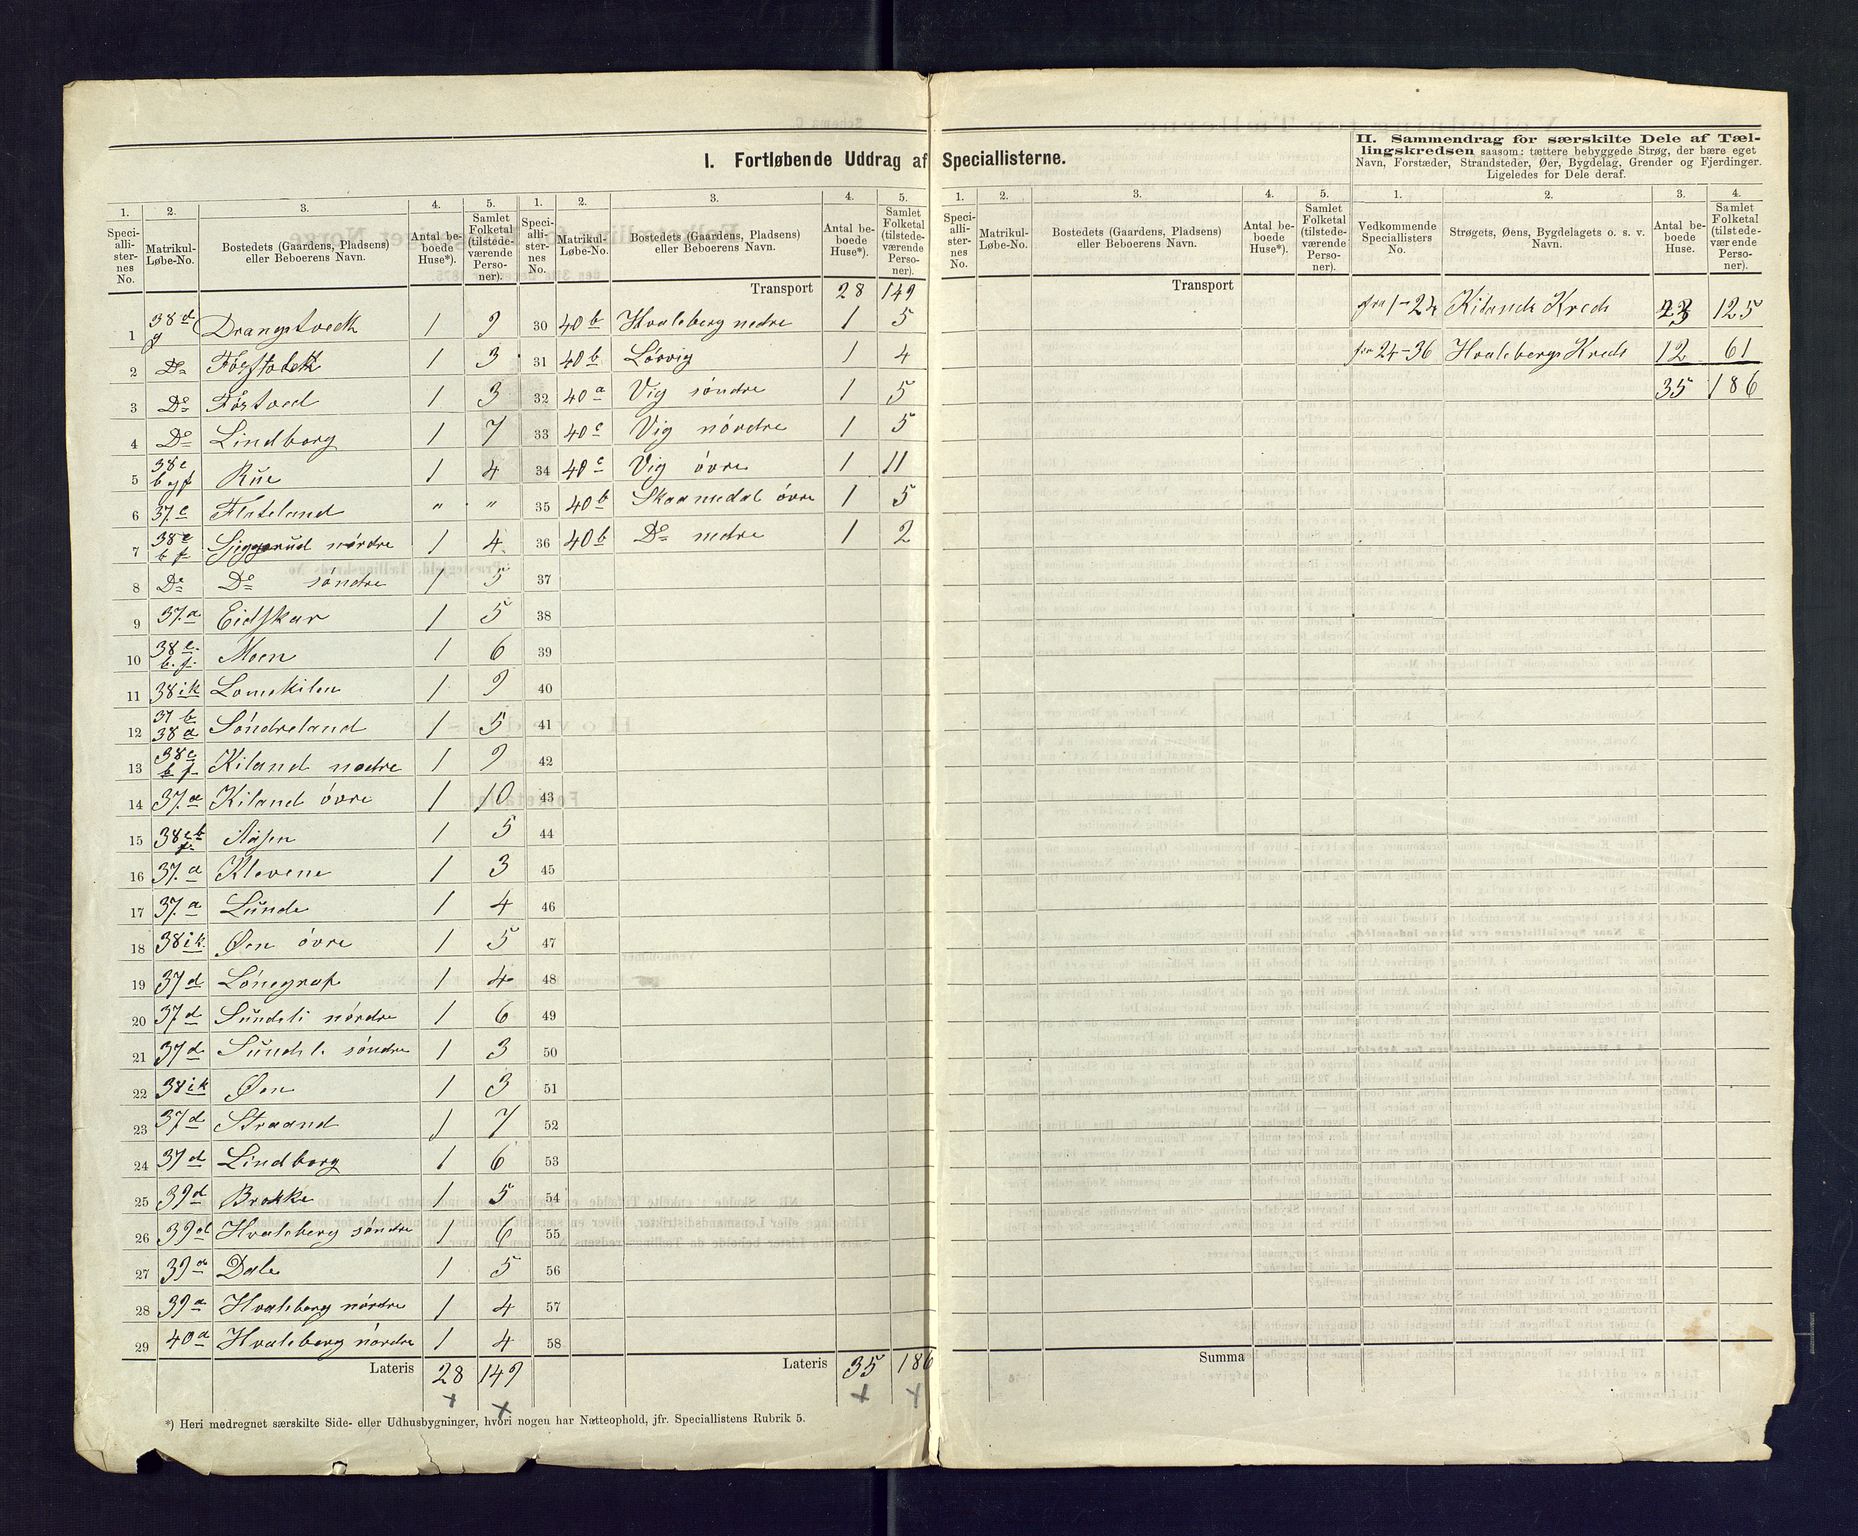 I. Fortløbende Uddrag af Speciallisterne.
1. 2. 3. 4. 5.
Speciallisternes No. Matrikul-Løbe-No. Bostedets (Gaardens, Pladsens) eller Beboerens Navn. Antal beboede Huse*). Samlet Folketal (tilstedeværende Personer).
1 38 d g Drangstvedt 1 9
2 Do 1 3
3 Do Föstved 1 3
4 Do Lindborg 1 7
5 38 e b og f Rue 1 4
6 37. c Flateland „ „
7 38 e b f nördre 1 4
8 Do Do söndre 1 5
9 37. a Eidskar 1 5
10 38 e. b. f. Moen 1 6
11 38 i k Lomekilen 1 9
12 37 b 38 a Söndreland 1 5
13 38 e b f Kiland nedre 1 9
14 37. a Kiland övre 1 10
15 38 e b f Aasen 1 5
16 37. a Klevene 1 3
17 37. a Lunde 1 4
18 38 i k. Øen övre 1 5
19 37 d Lönegraf 1 4
20 37 d Sundeli nördre 1 6
21 37 d söndre 1 3
22 38 i k Øen 1 3
23 37 d Straand 1 7
24 37 d Lindborg 1 6
25 39 d Brokke 1 5
26 39 d Hvaleberg söndre 1 6
27 39 a Dale 1 5
28 39 a Hvaleberg nördre 1 4
29 40 a Hvaleberg nördre 1 4
Lateris 28 149
x x
*) Heri medregnet særskilte Side- eller Udhusbygninger, hvori nogen har Natteophold, jfr. Speciallistens Rubrik 5.
1. 2. 3. 4. 5.
Speciallisternes No. Matrikul-Løbe-No. Bostedets (Gaardens, Pladsens) eller Beboerens Navn. Antal beboede Huse*). Samlet Folketal (tilstedeværende Personer).
Transport 28 149
30 40 b Hvaleberg nedre 1 5
31 40 b Lövvig 1 4
32 40 a Vig söndre 1 5
33 40 c Vig nördre 1 5
34 40 c Vig övre 1 11
35 40 b Skaamedal övre 1 5
36 40 b Do nedre 1 2
37
38
39
40
41
42
43
44
45
46
47
48
49
50
51
52
53
54
55
56
57
58
Lateris 35 186
x x
1. 2. 3. 4. 5.
Speciallisternes No. Matrikul-Løbe-No. Bostedets (Gaardens, Pladsens) eller Beboerens Navn. Antal beboede Huse*). Samlet Folketal (tilstedeværende Personer).
Transport
Summa
II. Sammendrag for særskilte Dele af Tællingskredsen saasom: tættere bebyggede Strøg, der bære eget
Navn, Forstæder, Strandsteder, Øer, Bygdelag, Grender og Fjerdinger.
Ligeledes for Dele deraf.
1. 2. 3. 4.
Vedkommende Speciallisters No. Strøgets, Øens, Bygdelagets o. s. v. Navn. Antal beboede Huse. Samlet Folketal (tilstedeværende Personer).
fra 1-24 Kilands Kreds 23 125
fra 24-36 Hvalebergs Kreds 12 61
35 186